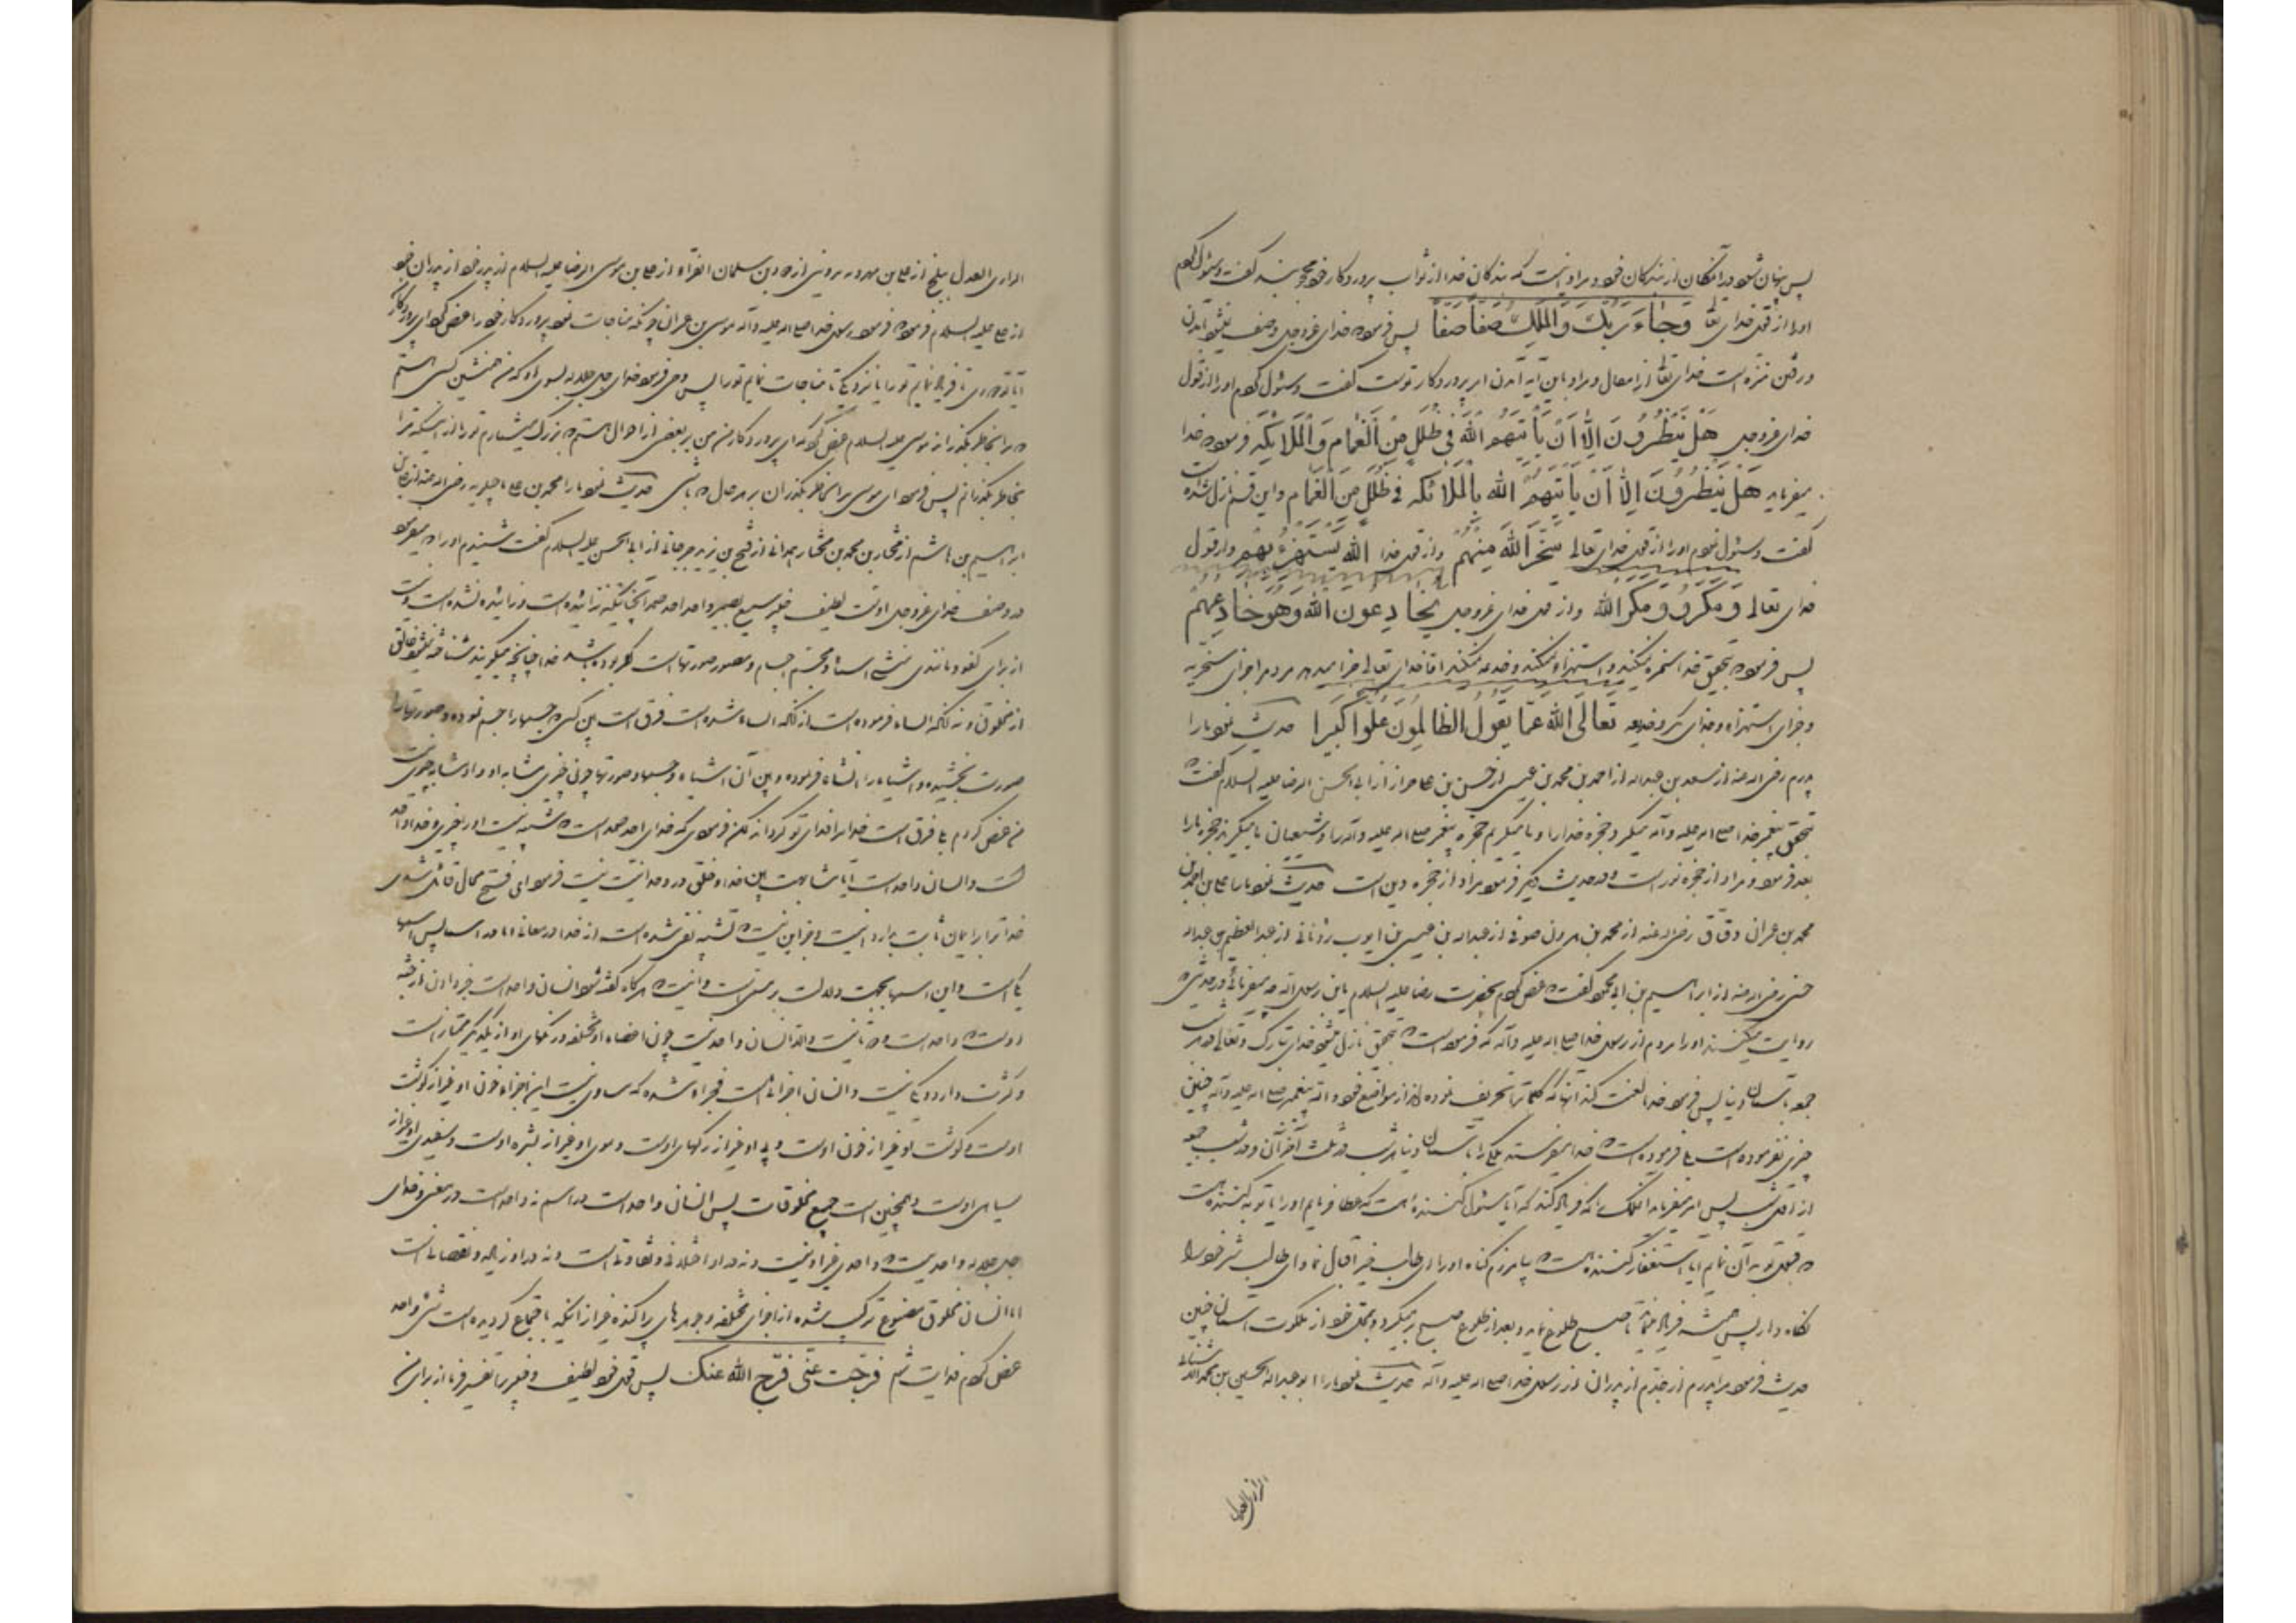 پس پنهان شود در آنمکان از بندکان خود و مراد اینست که بندکان خدا از ثواب پروردکار خود محجوبند کفت و سئوال کردم
او را از قول خدای تعا وَجاءَ رَبُّكَ وَالْمَلَكُ صَفّاً صَفّاً پس فرمود خدای عزوجل وصف نمیشود بآمدن
و رفتن منزه است خدای تعا از انتقال و مراد باین آیه آمدن امر پروردکار توست کفت و سئوال کردم او را از قول
خدای عزوجل هَلْ يَنْظُرُونَ اِلّا اَنْ يَأْتِيَهُمُ اللّه في ظُلَلٍ مِنَ الْغَمامِ وَالْمَلائِكَه فرمود خدا
میفرماید هَلْ يَنْظُرُونَ اِلّا اَنْ يَأْتِيَهُمُ اللّه بِالْمَلائِكَه في ظُلَلٍ مِنَ الْغَمامِ و این قسم نازل شده است
کفت و سئول نمودم او را از قول خدای تعالی سَخِرَ اللّهُ مِنْهُمْ و از قول خدا اللّه يَسْتَهْزِءُ بِهِمْ و از قول
خدای تعالی وَمَكَرُوا وَمَكَرَ اللّه و از قول خدای عزوجل يُخادِعُونَ اللّهَ وَهُوَ خادِعُهُمْ
پس فرمود بتحقیق خدا سخره نمیکند و استهزاء نمیکند و خدعه نمیکند اما خدای تعالی جزا میدهد مردم را جزای سخریه
و جزای استهزاء و جزای مکر و خدیعه تَعالَی اللّهُ عَمّا يَقُولُ الظّالِمُونَ عُلُوّاً كَبيراً حدیث نمود ما را
پدرم رضی اله عنه از سعد بن عبداله از احمد بن محمد بن عیسی از حسن بن علی خزاز از ابی الحسن الرضا علیه السلام کفت که
بتحقیق پیغمبر خدا صلی اله علیه وآله میکیرد حجزه خدا را و ما میکیریم حجزه پیغمبر صلی اله علیه وآله را و شیعیان ما میکیرند حجزه ما را
بعد فرمود و مراد از حجزه نور است و در حدیث دیکر فرمود مراد از حجزه دین است حدیث نمود ما را علی بن احمد بن
محمد بن عمران دقاق رضی اله عنه از محمد بن هرون صوفی از عبداله بن عیسی بن ایوب رؤیانی از عبدالعظیم بن عبداله
حسنی رضی اله عنه از ابراهیم بن ابی محمود کفت که عرض کردم بحضرت رضا علیه السلام یابن رسول اله چه میفرمائی در حدیثی که
روایت میکنند او را مردم از رسول خدا صلی اله علیه وآله که فرموده است که بتحقیق نازل میشود خدای تبارک و تعالی در هر شب
جمعه بآسمان دنیا پس فرمود خدا لعنت کند آنها که کلمات را تحریف نموده اند از مواضع خود واله پیغمبر صلی اله علیه وآله چنین
چیزی نفرموده است بلکه فرموده است که خدا میفرستد ملکی را بآسمان دنیا هر شب در ثلث آخر آن و در شب جمعه
از اول شب پس امر میفرماید آن ملک را که فریاد کند که آیا سئول کننده است که عطا فرمایم او را آیا توبه کننده است
که قبول توبه آن نمایم آیا استغفار کننده است که بیامرزم کناه او را ای طالب خیر اقبال نما و ای طالب شر خود را
نکاه دار پس همیشه فریاد مینماید تا صبح طلوع نماید و بعد از طلوع صبح بر میکردد بمحل خود از ملکوت آسمان چنین
حدیث فرمود مرا پدرم از جدم از پدران از رسول خدا صلی اله علیه وآله حدیث نمود ما را ابو عبداله الحسین بن محمد الاشنانی
الرازی العدل
الرازی العدل ببلخ از علی بن مهرویه قزوینی از داود بن سلیمان الفراء از علی بن موسی الرضا علیه السلام از پدر خود از پدران خود
از علی علیه السلام فرمود که فرمود رسول خدا صلی اله علیه وآله موسی بن عمران چونکه مناجات نمود پروردکار خود را عرض کرد ای پروردکار
آیا تو دوری تا فریاد نمایم تو را یا نزدیکی تا مناجات نمایم تو را پس وحی فرمود خدای جل جلاله بسوی او که من همنشین کسی هستم
که مرا بخاطر بکذراند موسی علیه السلام عرض کرد که ای پروردکار من من بر بعضی از احوال هستم که بزرک میشمارم تو را از اینکه ترا
بخاطر بکذرانم پس فرمود ای موسی مرا بخاطر بکذران بر هر حال که باشی حدیث نمود ما را محمد بن علی ماجیلویه رضی اله عنه از علی بن
ابراهیم بن هاشم از مختار بن محمد بن مختار همدانی از فتح بن یزید جرجانی از ابی الحسن علیه السلام کفت شنیدم او را که میفرمود
در وصف خدای عزوجل اوست لطیف خبیر سمیع بصیر واحد احد صمد آنچنانیکه نزائیده است و زائیده نشده است و نیست
از برای او کفو و مانندی منشئ اشیاء و مجسم اجسام و مصور صورتها است اکر بوده باشد خدا چنانچه میکویند شناخته نمیشود خالق
از مخلوق و نه آنکه انشاء فرموده است از آنکه انشاء شده است فرق است بین کسیکه جسمها را جسم نموده و صورتها را
صورت بخشیده و اشیاء را انشاء فرموده و بین آن اشیاء و جسمها و صورتها چون چیزی مشابه او و او مشابه چیزی نیست
من عرض کردم بلی فرق است خدا مرا فدای تو کرداند لکن فرمودی که خدای احد صمد است که شبیه نیست او را چیزی و خدا واحد
است و انسان واحد است آیا مشابهت بین خدا و خلق در وحدانیت نیست فرمود ای فتح محال قائل شدی
خدا ترا بر ایمان ثابت بدارد اینست و جز این نیست که تشبیه نفی شده است از خدا در معانی اما در اسماء پس اسمها
یکی است و این اسمها بجهت دلالت بر مسمی است و اینست که هرکاه کفته شود انسان واحد است خبر دادن از جثه
اوست که واحد است و دو تا نیست والا انسان واحد نیست چون اعضاء او مختلفه و رنکهای او از یکدیکر ممتاز است
و کثرت دارد و یکی نیست و انسان اجزائی است مجزا شده که مساوی نیست این اجزاء خون او غیر از کوشت
اوست و کوشت او غیر از خون اوست و پی او غیر از رکهای اوست و موی او غیر از بشره اوست و سفیدی او غیر از
سیاهی اوست و همچنین است جمیع مخلوقات پس انسان واحد است در اسم نه واحد است در معنی و خدای
جل جلاله واحدیست که واحدی غیر او نیست و نه در او اختلافی و تفاوتی است و نه در او زیاده و نقصانی است
اما انسان مخلوق مصنوع ترکیب شده از اجزای مختلفه و جوهرهای پراکنده غیر از اینکه باجتماع کردیده است شئ واحد
عرض کردم فدایت شوم فَرَّجْتَ عَنّی فَرَّجَ اللّهُ عَنْكَ پس قول خود لطیف و خبیر را تفسیر فرما از برای من